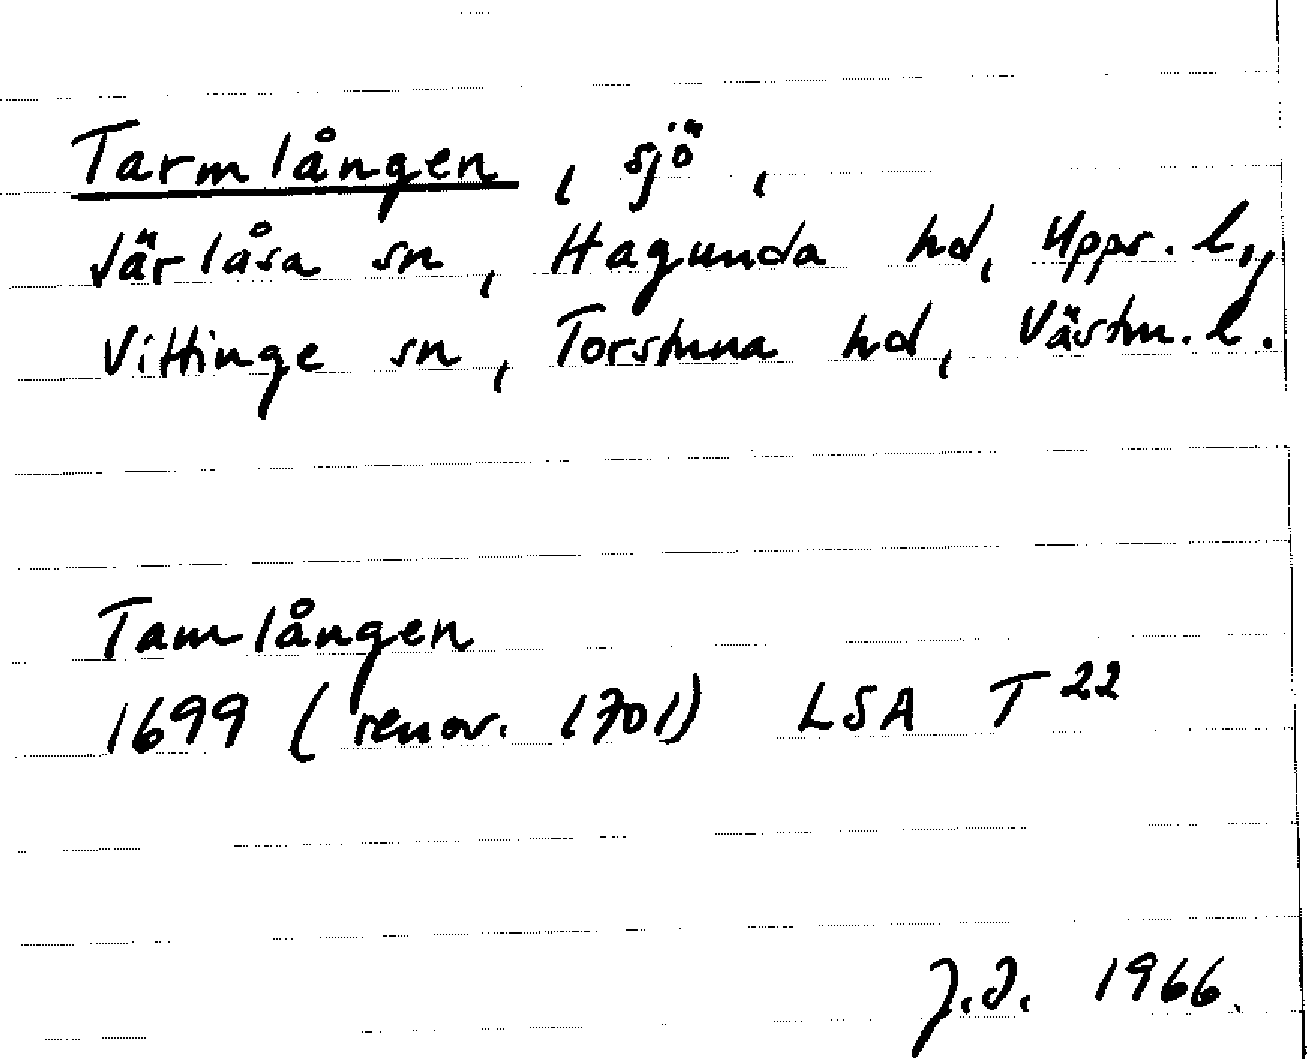 Tarmlången, sjö,
Järlåsa sn, Hagunda hd, Upps. l.,
Vittinge sn, Torstuna hd, Västm. l.
Tamlången
1699 (renov. 1701) LSA T 22
1966.